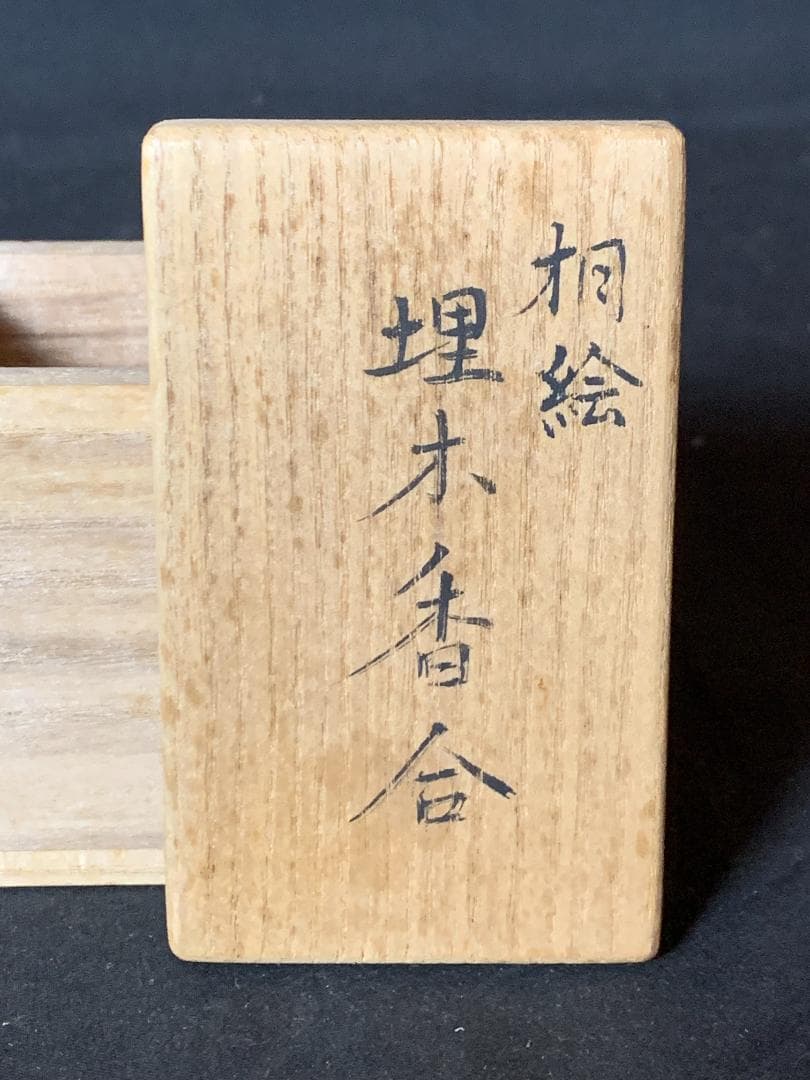 桐絵
埋木香合